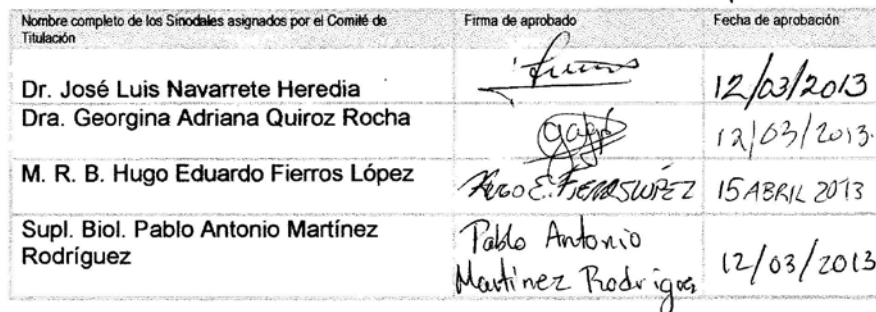 Nombre completo de los Sinodales asignados por el Comité de Titulación Firma de aprobado Fecha de aprobación
Dr. José Luis Navarrete Heredia 12/03/2013
Dra. Georgina Adriana Quiroz Rocha 12/03/2013.
M. R. B. Hugo Eduardo Fierros López HUGO E. FIERROS LÓPEZ 15 ABRIL 2013
Supl. Biol. Pablo Antonio Martínez Pablo Antonio
Rodríguez Martínez Rodríguez 12/03/2013